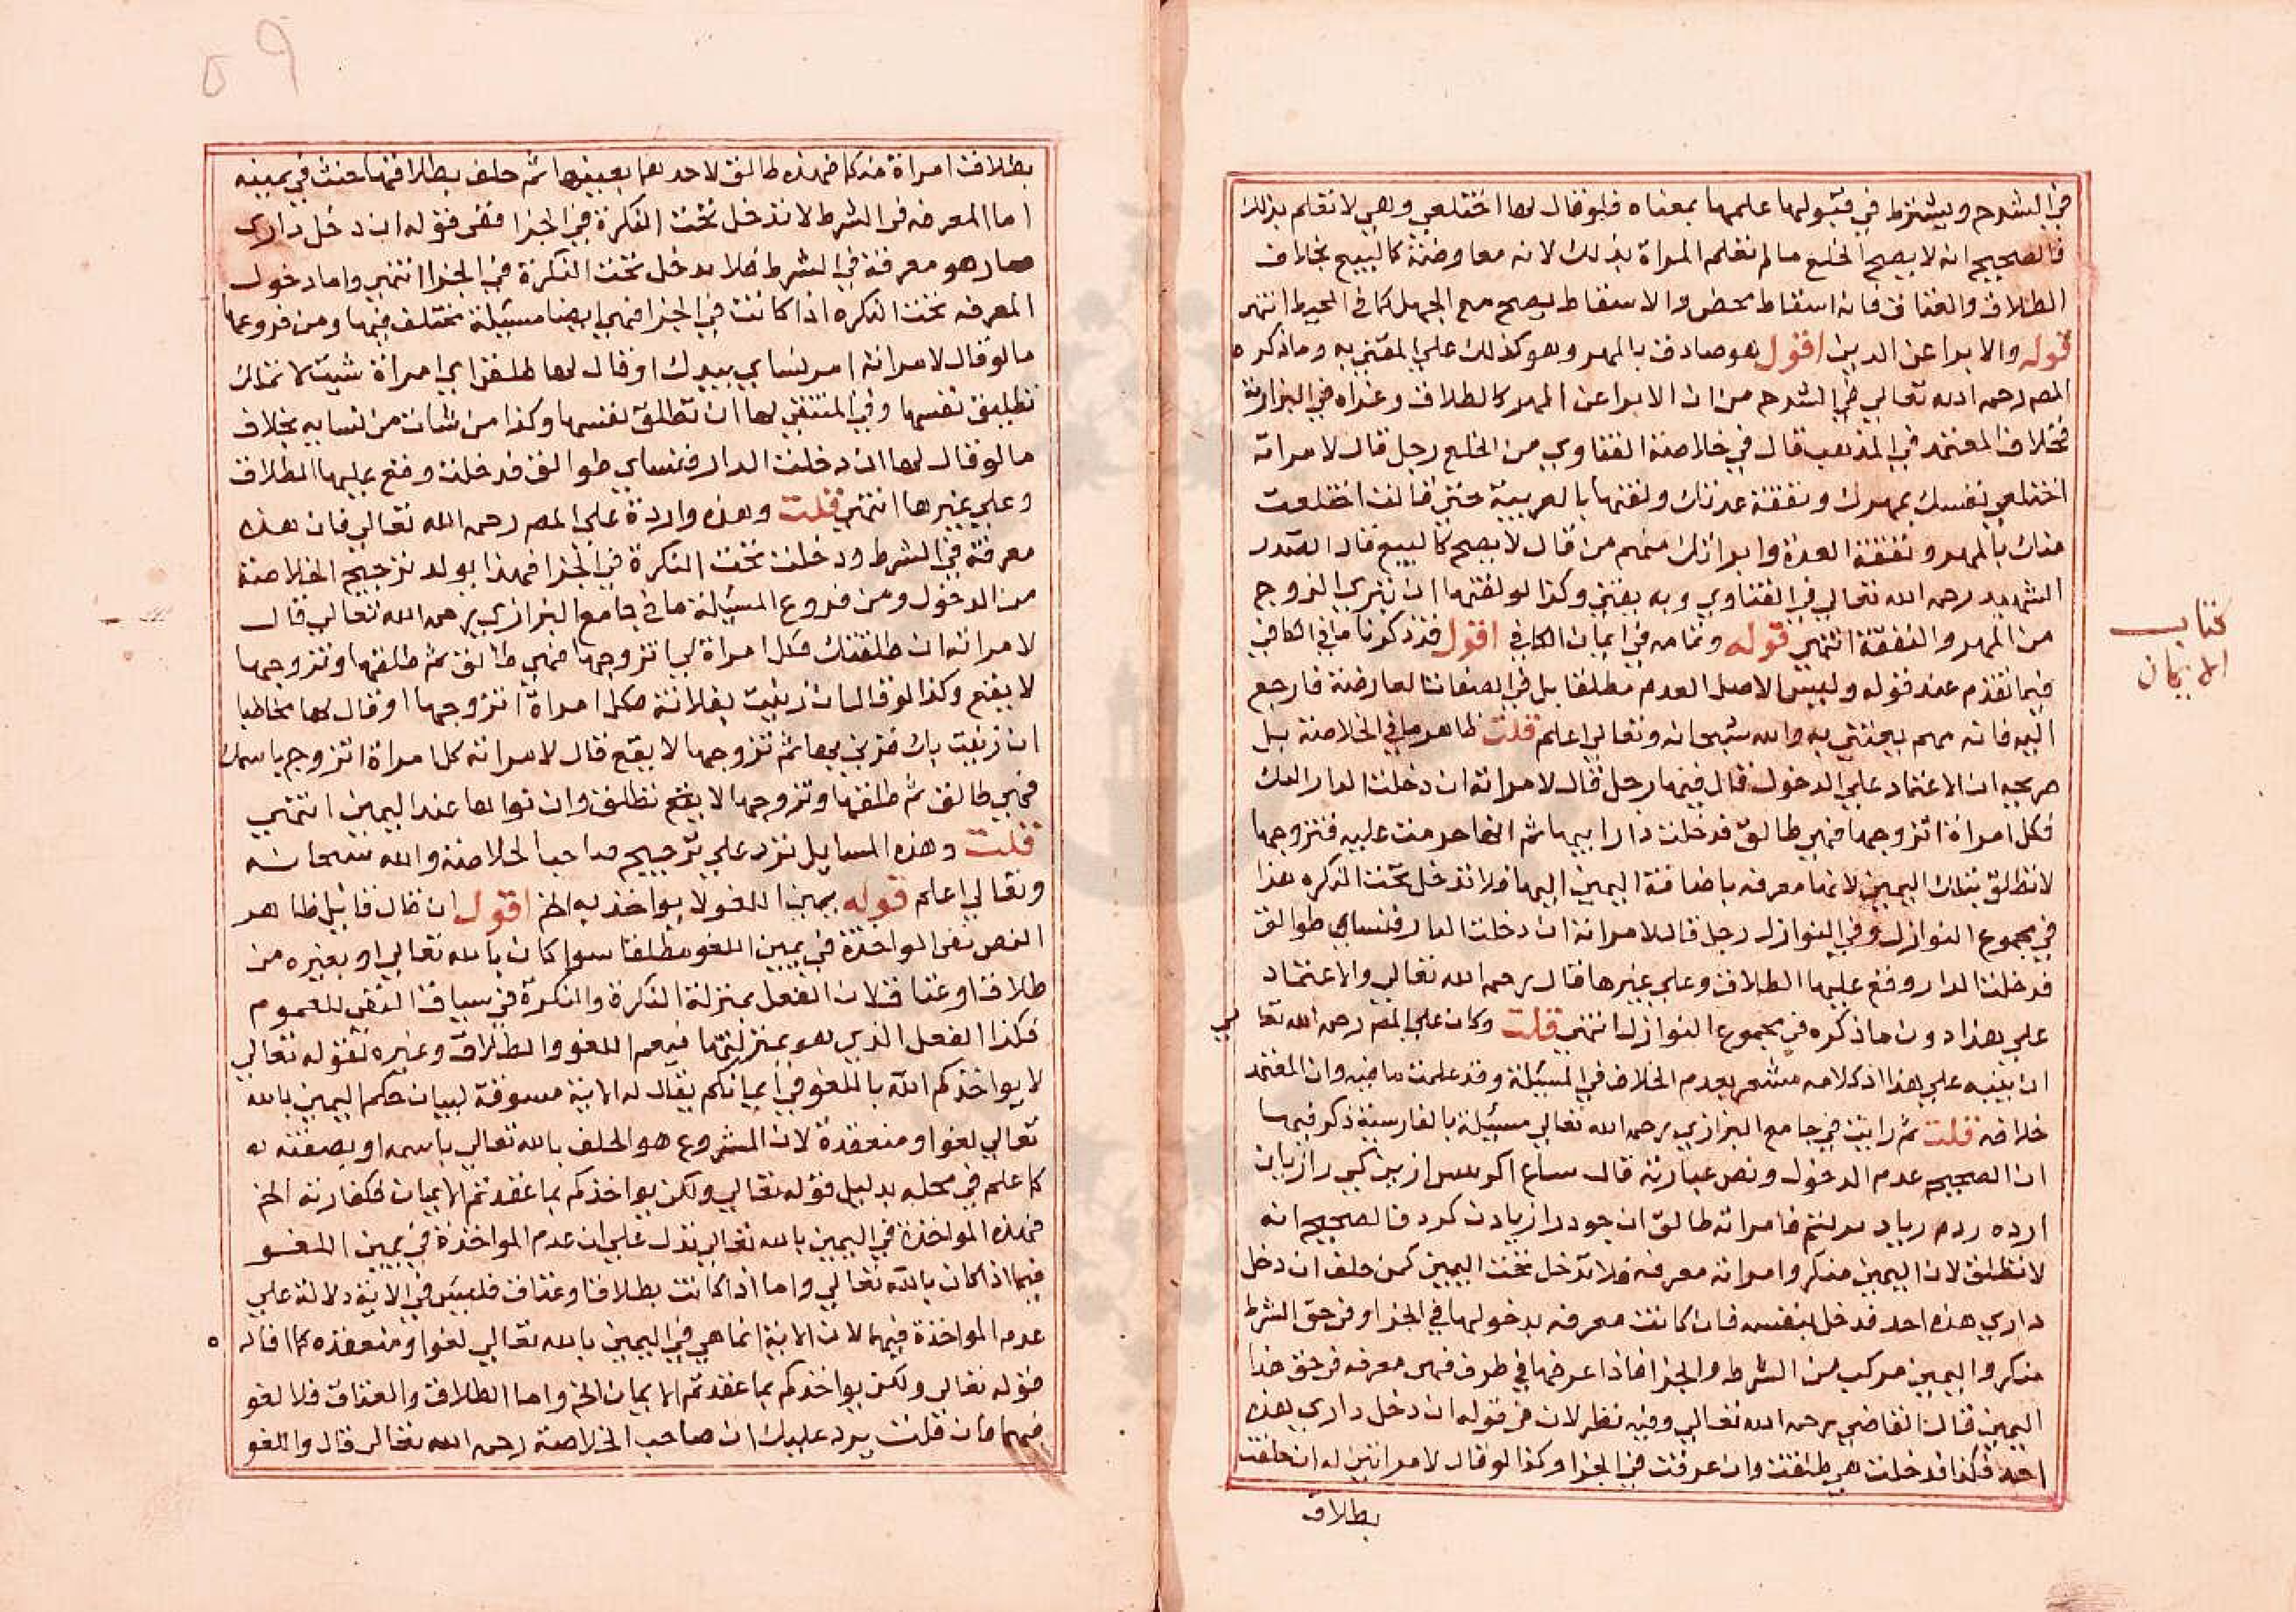 في الشرح ويشترط في قبولها علمها بمعناه فلو قال لها اختلعي وهي لا تعلم بذلك
فالصحيح انه لا يصح الخلع مالم تعلم المراة بذلك لانه معاوضة كالبيع بخلاف
الطلاق والعتاق فانه اسقاط محض والاسقاط يصح مع الجهل كما في المحيط انتهى
قوله والابرا عن الدين اقول هو صادق بالمهر وهو كذلك علي المفتي به وما ذكره
المص رحمه الله تعالي في الشرح من ان الابرا عن المهر كالطلاق وعزاه في البزازية
فخلاف المعتمد في المذهب قال في خلاصة الفتاوي من الخلع رجل قال لامراته
اختلعي نفسك بمهرك ونفقة عدتك ولقنها بالعربية حتى قالت اختلعت
منك بالمهر ونفقة العدة وابراتك منهم من قال لا يصح كالبيع قال الصدر
الشهيد رحمه الله تعالي في الفتاوي وبه يفتي وكذا لو لقنها ان تبري الزوج
من المهر والنفقة انتهي قوله وتمامه في ايمان الكافي اقول قد ذكرنا ما في الكافي
فيما تقدم عند قوله وليس الاصل العدم مطلقا بل في الصفات العارضة فارجع
اليه فانه مهم يعتني به والله سبحانه وتعالي اعلم قلت ظاهر ما في الخلاصة بل
صريحه ان الاعتماد علي الدخول قال فيها رجل قال لامراته ان دخلت الدار
فكل امراة اتزوجها فهي طالق فدخلت دار ابيها ثم انها حرمت عليه فتزوجها
لا تطلق بتلك اليمين لانها معرفه باضافة اليمين اليها فلا تدخل تحت النكره هذا
في مجموع النوازل وفي النوازل رجل قال لامراته ان دخلت الدار فنساي طوالق
فدخلت الدار وقع عليها الطلاق وعلي غيرها قال رحمه الله تعالي والاعتماد
علي هذا دون ما ذكره في مجموع النوازل انتهي قلت وكان علي المص رحمه الله تعالي
ان ينبه علي هذا اذ كلامه مشعر بعدم الخلاف في المسئلة وقد علمت ما فيه وان المعتمد
خلافه قلت ثم رايت في جامع البزازي رحمه الله تعالي مسئلة بالفارسية ذكر فيها
ان الصحيح عدم الدخول ونص عبارته قال
فامراته طالق ان فالصحيح انه
لا تطلق لان اليمين منكر وامراته معرفه فلا تدخل تحت اليمين كمن حلف ان دخل
داري هذه احد فدخل بنفسه فان كانت معرفه بدخولها في الجزا وفي حق الشرط
منكر واليمين مركب من الشرط والجزا فاذا عرضها في طرف فهي معرفه في حق هذا
اليمين قال القاضي رحمه الله تعالي وفيه نظر لان في قوله ان دخل داري هذه
احد فكذا فدخلت هي طلقت وان عرفت في الجزا وكذا لو قال لامراتين له ان حلفت
بطلاق
كتاب
الايمان
٥٩
بطلاق امراة منكما فهذه طالق لاحدهما بعينها ثم حلف بطلاقها حنث في يمينه
اما المعرفه في الشرط لا تدخل تحت النكرة في الجزا ففي قوله ان دخل داري
صار هو معرفة في الشرط فلا يدخل تحت النكرة في الجزا انتهي واما دخول
المعرفه تحت النكره اذا كانت في الجزا فهي ايضا مسئلة مختلف فيها ومن فروعها
ما لو قال لامراته امر نساي بيدك او قال لها طلقي اي امراة شيت لا تملك
تطليق نفسها وفي المنتقي لها ان تطلق نفسها وكذا من شات من نسايه بخلاف
ما لو قال لها ان دخلت الدار فنساي طوالق فدخلت وقع عليها الطلاق
وعلي غيرها انتهي قلت وهذه واردة علي المص رحمه الله تعالي فان هذه
معرفة في الشرط ودخلت تحت النكرة في الجزا فهذا يويد ترجيح الخلاصة
من الدخول ومن فروع المسئلة ما في جامع البزازي رحمه الله تعالي قال
لامراته ان طلقتك فكل امراة لي اتزوجها فهي طالق ثم طلقها وتزوجها
لا يقع وكذا لو قال ان زنيت بفلانة فكل امراة اتزوجها او قال لها مخاطبا
ان زنيت بك فزني بها ثم تزوجها لا يقع قال لامراته كل امراة اتزوج باسمك
فهي طالق ثم طلقها وتزوجها لا يقع تطلق وان نواها عند اليمين انتهي
قلت وهذه المسايل ترد علي ترجيح صاحب الخلاصة والله سبحانه
وتعالي اعلم قوله يمين اللغو لا يواخذ به الخ اقول ان قال قائل ظاهر
النص نفي المواخذة في يمين اللغو مطلقا سوا كان بالله تعالي او بغيره من
طلاق او عتاق لان الفعل بمنزلة النكرة والنكرة في سياق النفي للعموم
فكذا الفعل الذي هو بمنزلتها فيعم اللغو والطلاق وغيره لقوله تعالي
لا يواخذكم الله باللغو في ايمانكم يقال له الاية مسوقة لبيان حكم اليمين بالله
تعالي لغوا ومنعقدة لان المشروع هو الحلف بالله تعالي باسمه او بصفته له
كما علم في محله بدليل قوله تعالي ولكن يواخذكم بما عقدتم الايمان فكفارته الخ
فهذه المواخذة في اليمين بالله تعالي تدل علي ان عدم المواخذة في يمين اللغو
فيما اذا كان بالله تعالي واما اذا كانت بطلاق او عتاق فليس في الاية دلالة علي
عدم المواخذة فيهما لان الاية انما هي في اليمين بالله تعالي لغوا ومنعقده كما قال ه
قوله تعالي ولكن يواخذكم بما عقدتم الايمان الخ واما الطلاق والعتاق فلا لغو
فيهما فان قلت يرد عليك ان صاحب الخلاصة رحمه الله تعالي قال واللغو